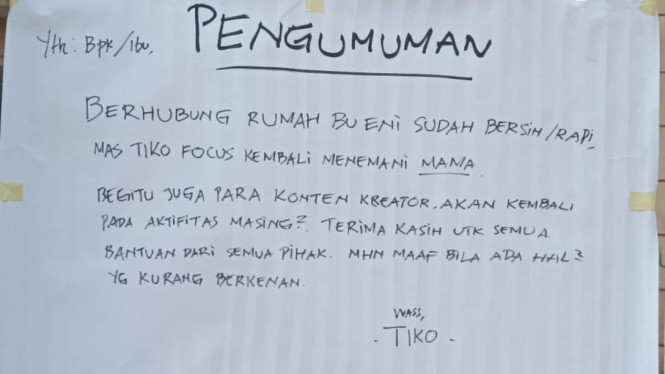 PENGUMUMAN
Yth: Bpk/Ibu,
BERHUBUNG RUMAH BU ENI SUDAH BERSIH/RAPI,
MAS TIKO FOCUS KEMBALI MENEMANI MAMA.
BEGITU JUGA PARA KONTEN KREATOR, AKAN KEMBALI
PADA AKTIFITAS MASING². TERIMA KASIH UTK SEMUA
BANTUAN DARI SEMUA PIHAK. MHN MAAF BILA ADA HAL²
YG KURANG BERKENAN.
WASS,
- TIKO -